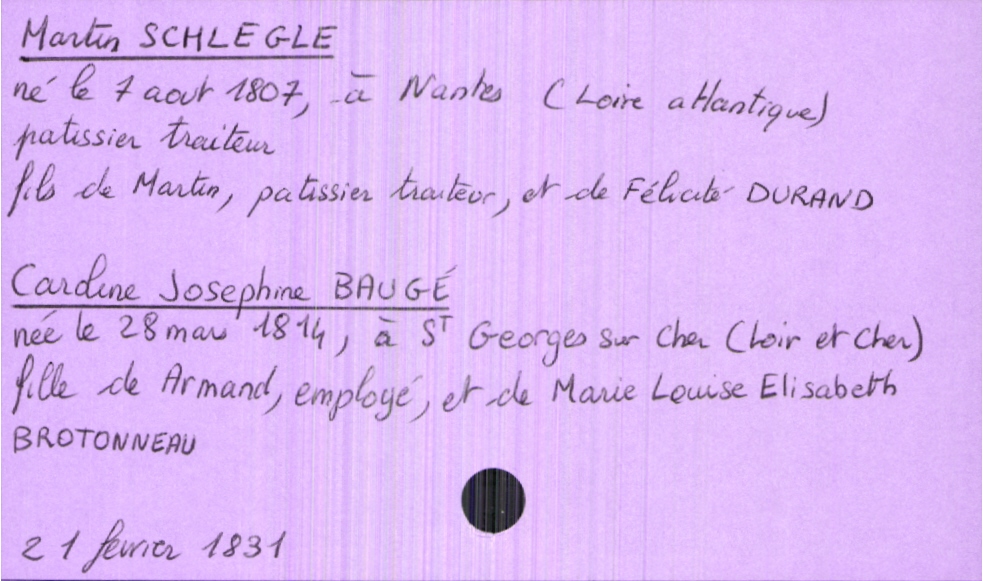 Martin SCHLEGLE
né le 7 aout 1807, à Nantes (Loire atlantique)
patissier traiteur
fils de Martin, patissier traiteur, et de Félicité DURAND
Caroline Josephine BAUGÉ
née le 28 mars 1814, à ST Georges sur Cher (Loir et Cher)
fille de Armand, employé, et de Marie Louise Elisabeth
BROTONNEAU
21 fevrier 1831